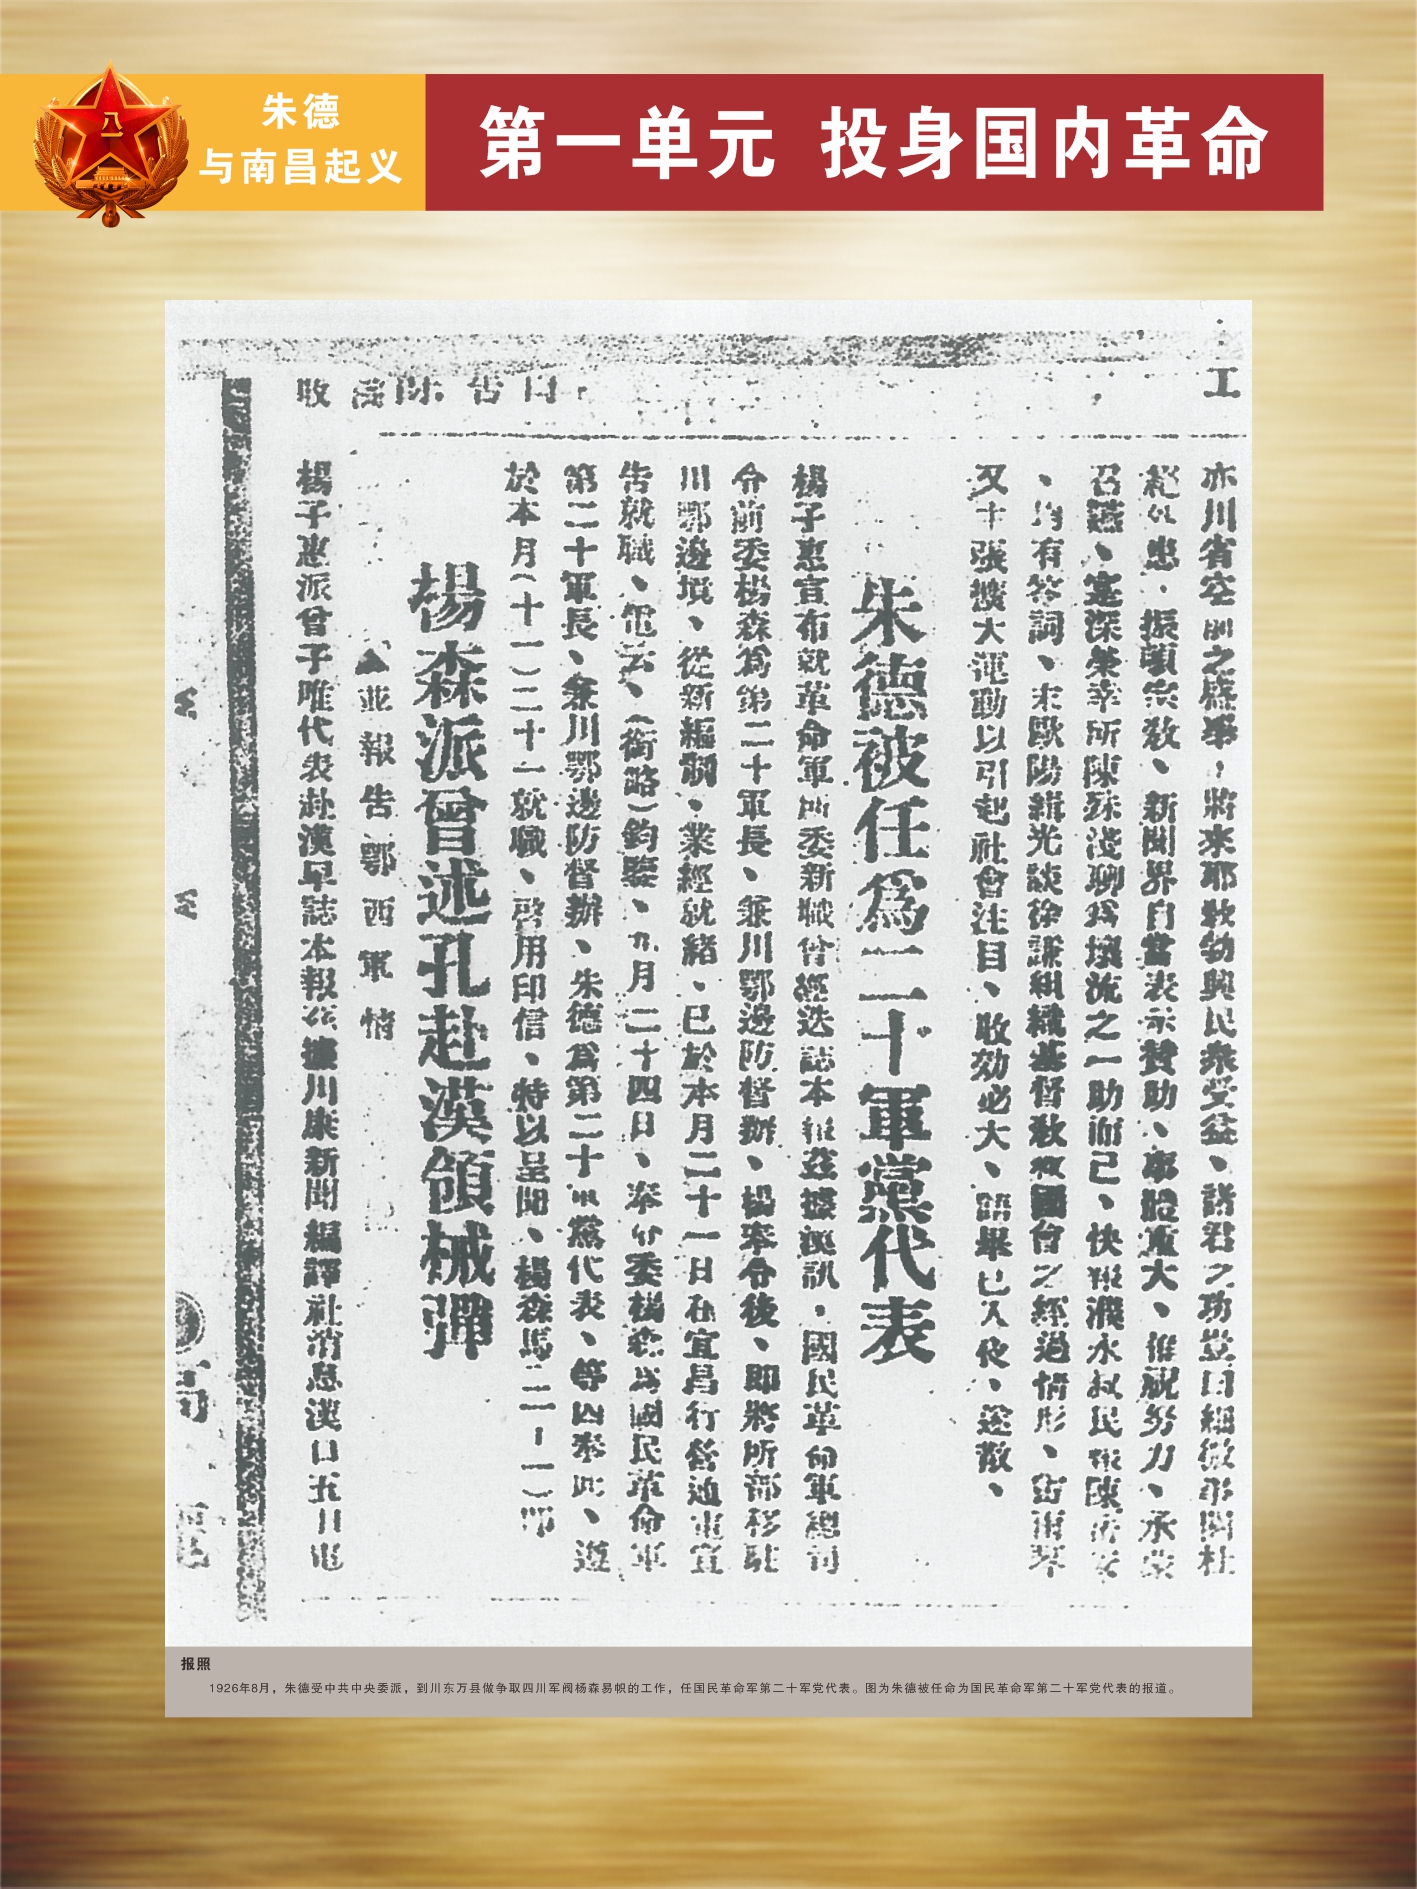 八一
朱德
与南昌起义
第一单元 投身国内革命
工
亦川省空前之盛舉，將來耶教勃興民衆受益、諸君之功豈曰細微
振頓宗教、新聞界自當表示贊助、事體重大、惟祝努力、承蒙
召讌、寔深榮幸所陳殊淺聊爲壤流之一助而已、快報濮水叔民報陳
均有答詞、末歐陽緝光談徐謙組織基督教救國會之經過情形、
又主張擴大運動以引起社會注目、收効必大、語畢已入夜、遂散、
朱德被任爲二十軍黨代表
楊子惠宣布就革命軍所委新職曾經迭誌本報茲據漢訊，國民革命軍總司
令前委楊森爲第二十軍長、兼川鄂邊防督辦、楊奉令後、即將所部移駐
川鄂邊境、從新編制、業經就緒、已於本月二十一日在宜昌行營通電宣
告就職、電云、（銜略）鈞鑒、九月二十四日、奉令委楊森爲國民革命軍
第二十軍長、兼川鄂邊防督辦、朱德爲第二十軍黨代表、等因奉此、遵
於本月（十一）二十一就職、啓用印信、特以呈聞、楊森馬二一一）
楊森派曾述孔赴漢領械彈
▲並報告鄂西軍情
楊子惠派曾子唯代表赴漢早誌本報茲據川康新聞編譯社消息漢口五日電
报照
1926年8月，朱德受中共中央委派，到川东万县做争取四川军阀杨森易帜的工作，任国民革命军第二十军党代表。图为朱德被任命为国民革命军第二十军党代表的报道。